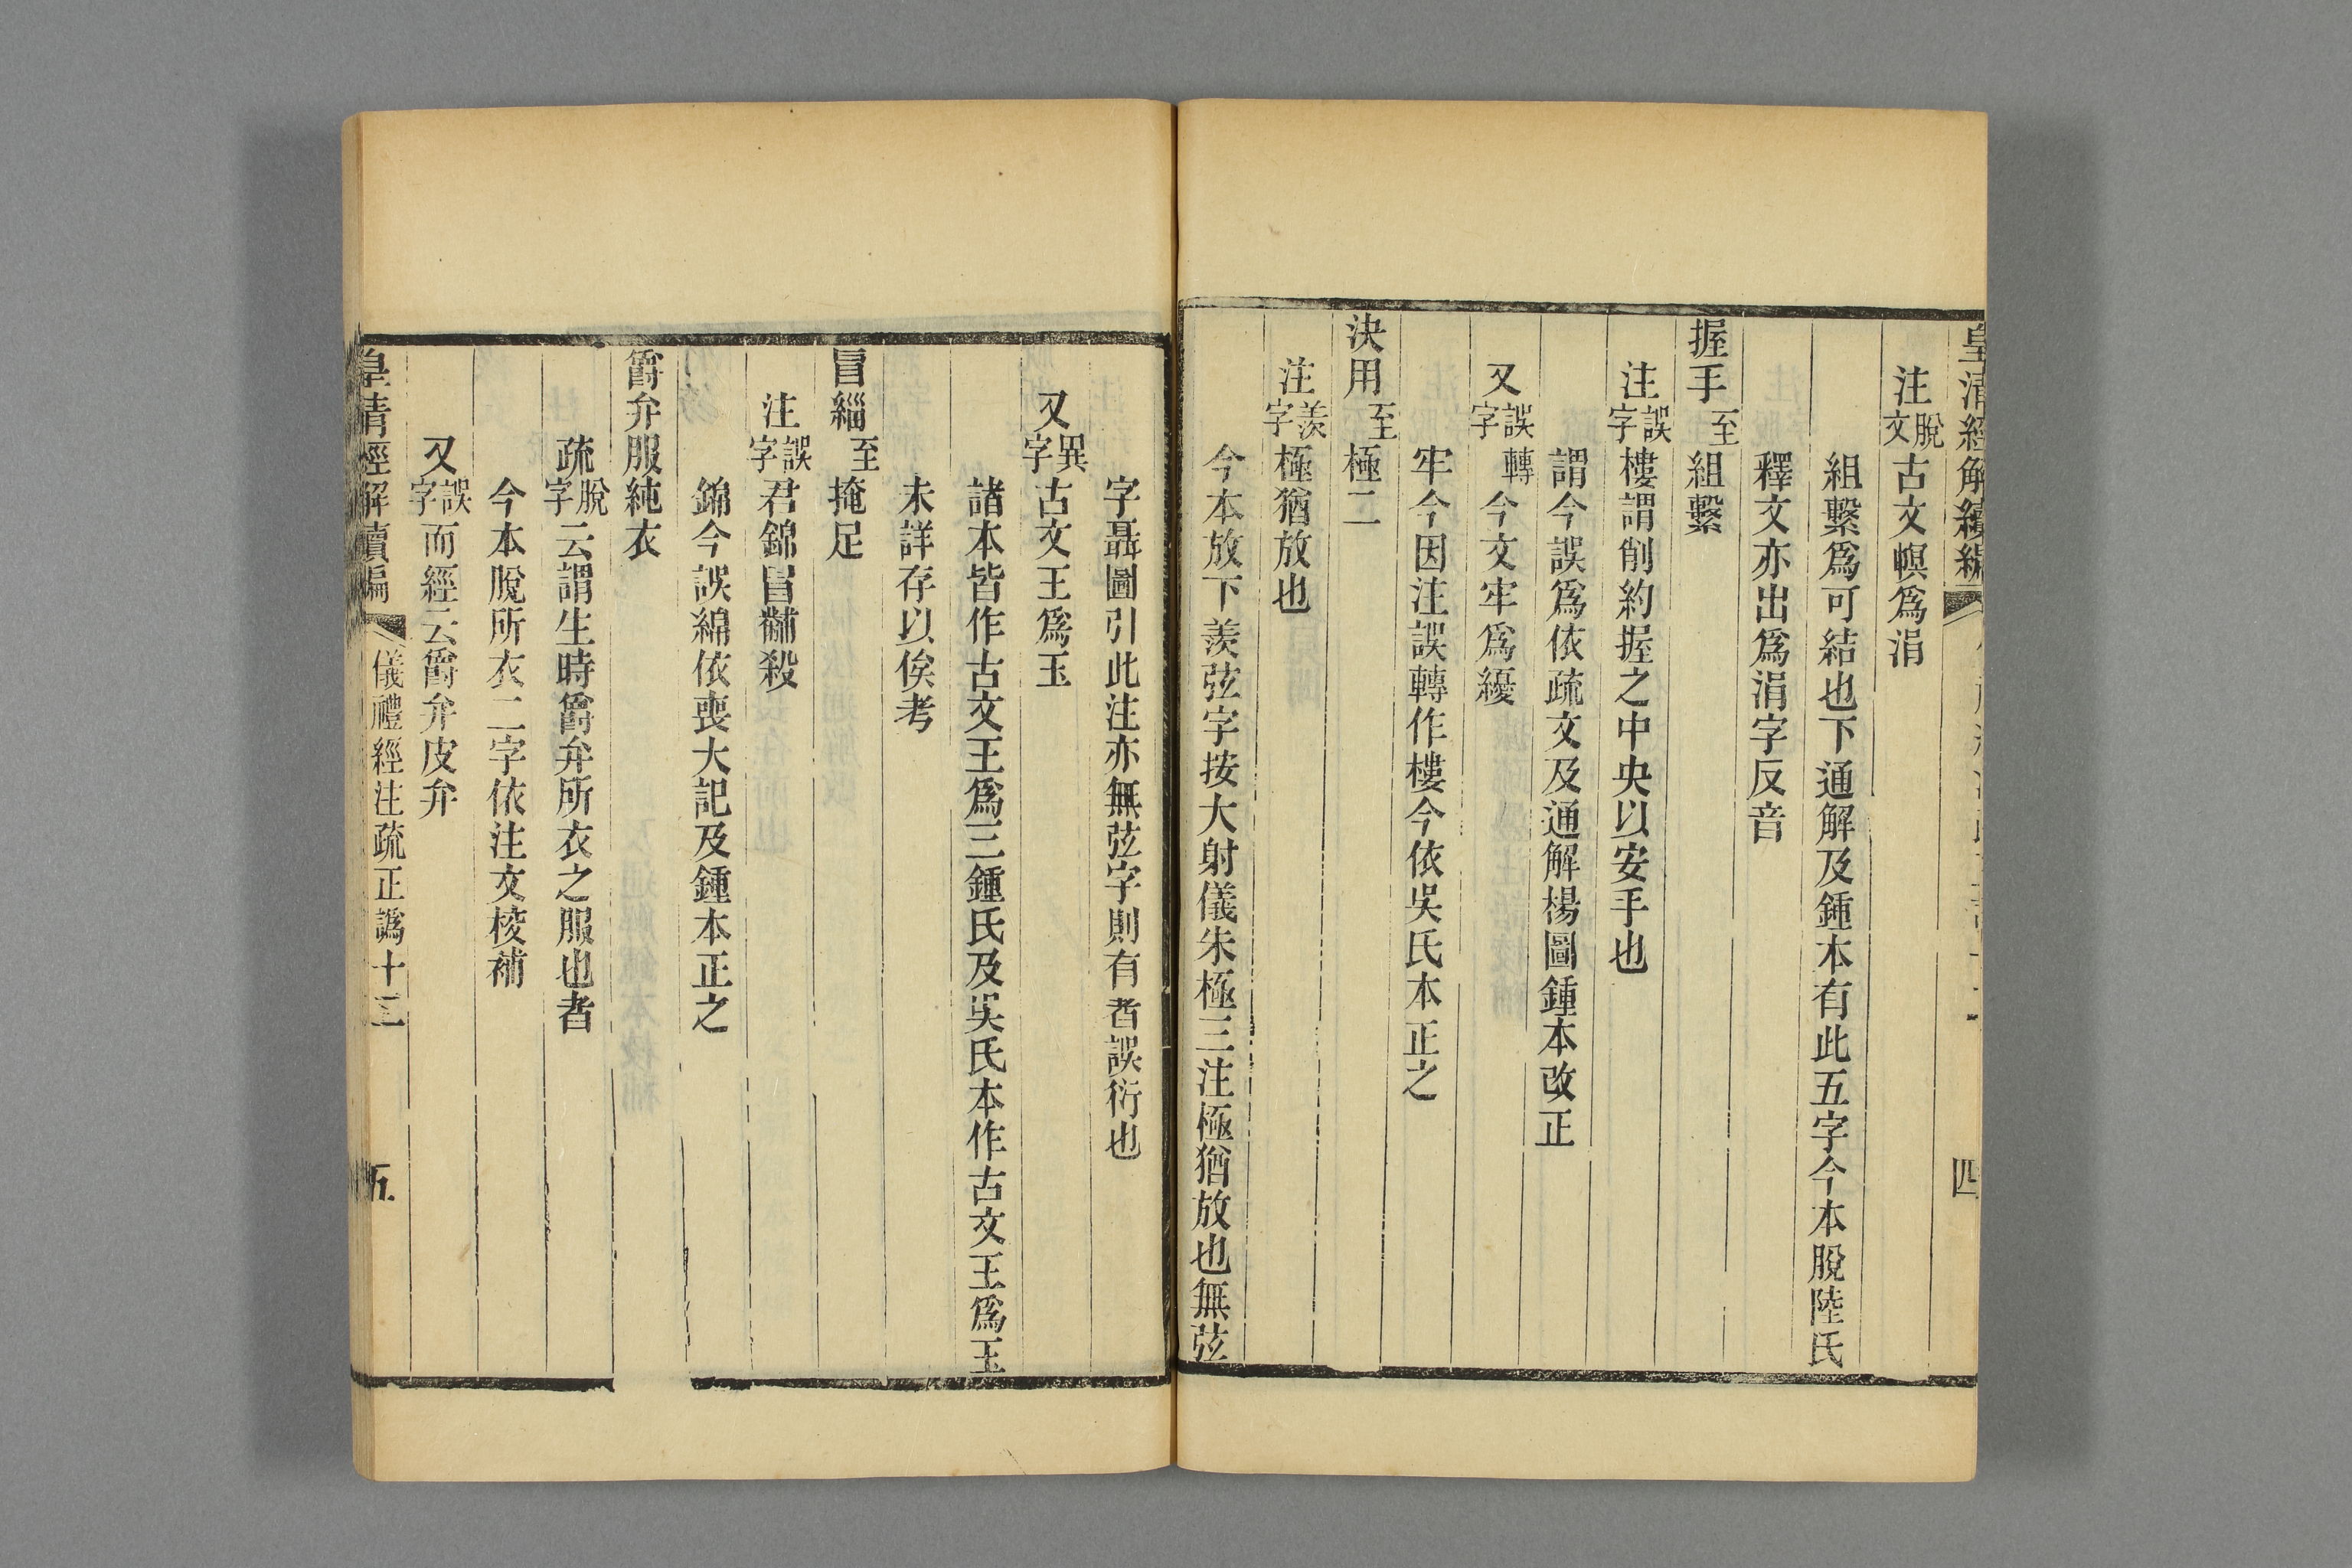 皇清經解續編
四
注脫文古文幎爲涓
組繫爲可結也下通解及鍾本有此五字今本脫陸氏
釋文亦出爲涓字反音
握手至組繫
注誤字樓謂削約握之中央以安手也
謂今誤爲依疏文及通解楊圖鍾本改正
又誤字轉今文牢爲緩
牢今因注誤轉作樓今依吳氏本正之
決用至極二
注羨字極猶放也
今本放下羨弦字按大射儀朱極三注極猶放也無弦
字聶圖引此注亦無弦字則有者誤衍也
又異字古文王爲玉
諸本皆作古文王爲三鍾氏及吳氏本作古文王爲玉
未詳存以俟考
冒緇至掩足
注誤字君錦冒黼殺
錦今誤綿依喪大記及鍾本正之
爵弁服純衣
疏脫字云謂生時爵弁所衣之服也者
今本脫所衣二字依注文棱補
又誤字而經云爵弁皮弁
皇清經解續編 儀禮經注疏正譌十三 五